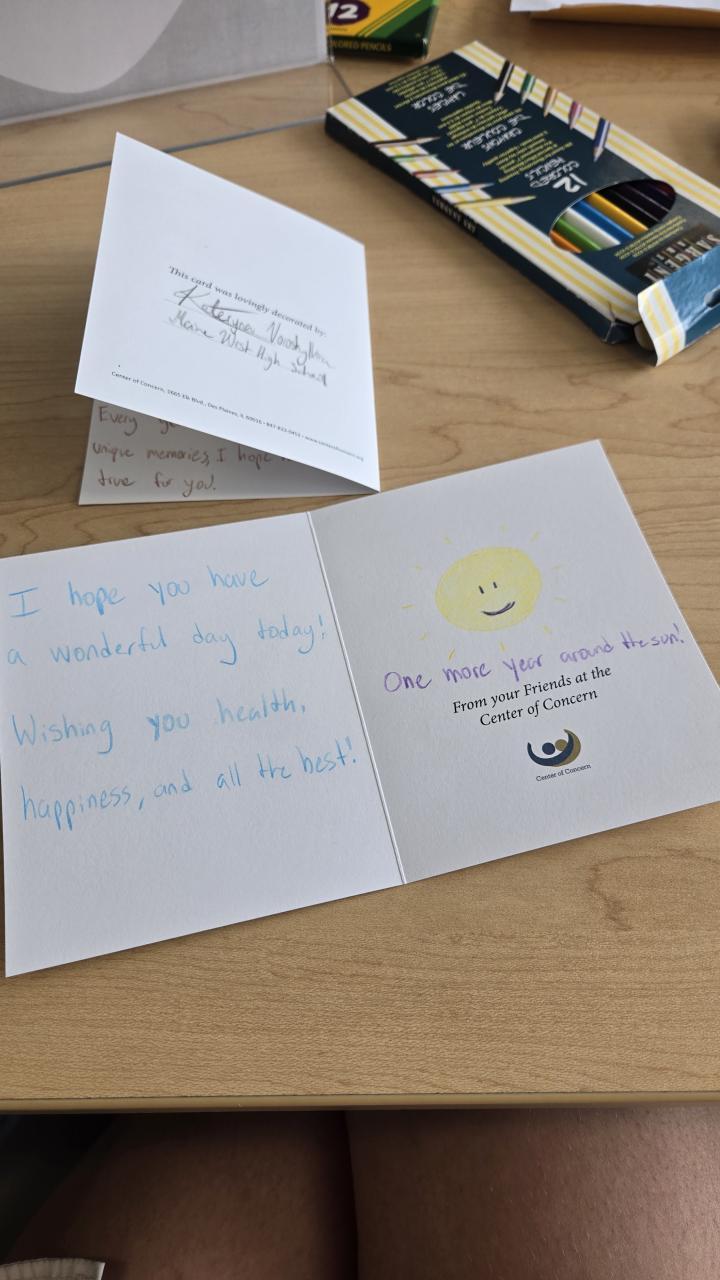 12
COLORED PENCILS
LÁPICES
DE COLOR
CRAYONS
DE COULEUR
12
COLORED
PENCILS
SARGENT ART
SARGENT
This card was lovingly decorated by:
Maine West High School
Center of Concern, 1665 Elk Blvd., Des Plaines, IL 60016 • 847-823-0453 • www.centerofconcern.org
Every
unique memories, I hope
true for you.
I hope you have
a wonderful day today!
Wishing you health,
happiness, and all the best!
One more year around the sun!
From your Friends at the
Center of Concern
Center of Concern